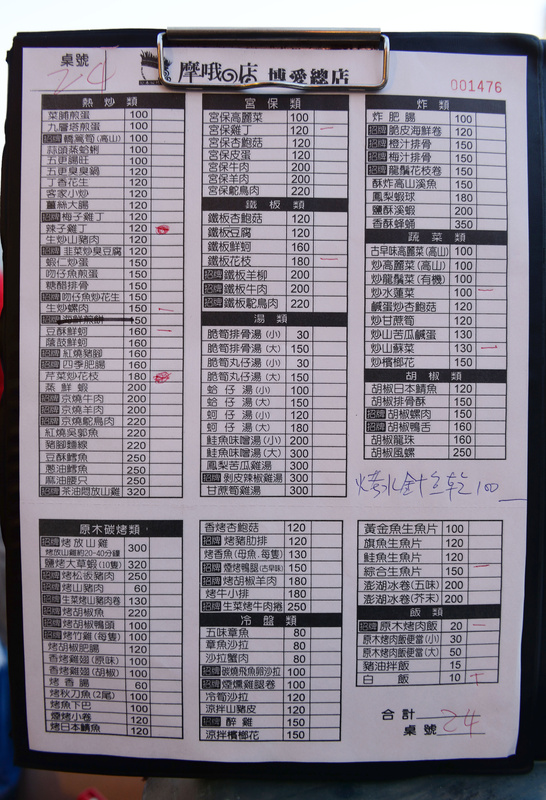 桌號
24
摩哦の店 博愛總店
001476
熱炒類
菜脯煎蛋 100
九層塔煎蛋 100
招牌 轎篙筍(高山) 100
蒜頭蒸蛤蜊 100
五更腸旺 100
五更臭臭鍋 120
丁香花生 120
客家小炒 120
薑絲大腸 120
招牌 梅子雞丁 120
辣子雞丁 120
生炒山豬肉 120
招牌 韭菜炒臭豆腐 120
蝦仁炒蛋 150
吻仔魚煎蛋 150
糖醋排骨 150
招牌 吻仔魚炒花生 150
生炒螺肉 150 一
招牌 海鮮煎餅 150
豆酥鮮蚵 160 一
蔭鼓鮮蚵 160
招牌 紅燒豬腳 160
招牌 四季肥腸 160
芹菜炒花枝 180
蒸鮮蝦 200
招牌 京燒牛肉 200
招牌 京燒羊肉 200
招牌 京燒鴕鳥肉 220
紅燒吳郭魚 220
豬腳麵線 220
豆酥鱈魚 250
蔥油鱈魚 250
麻油腰只 250
招牌 茶油悶放山雞 320
宮保類
宮保高麗菜 100
宮保雞丁 120 一
宮保杏鮑菇 120
宮保皮蛋 120
宮保牛肉 200
宮保羊肉 200
宮保鴕鳥肉 220
鐵板類
鐵板杏鮑菇 120
鐵板豆腐 120
鐵板鮮蚵 160
鐵板花枝 180 一
招牌 鐵板羊柳 200
招牌 鐵板牛肉 200
招牌 鐵板鴕鳥肉 220
湯類
脆筍排骨湯(小) 30
脆筍排骨湯(大) 150
脆筍丸仔湯(小) 30
脆筍丸仔湯(大) 150
蛤仔湯(小) 100
蛤仔湯(大) 150
蚵仔湯(小) 120
蚵仔湯(大) 180
鮭魚味噌湯(小) 200
鮭魚味噌湯(大) 300
鳳梨苦瓜雞湯 300
招牌 剝皮辣椒雞湯 300
甘蔗筍雞湯 300
炸類
炸肥腸 100
招牌 脆皮海鮮卷 120
招牌 橙汁排骨 150
招牌 梅汁排骨 150
招牌 龍鬚花枝卷 150
酥炸高山溪魚 150
鳳梨蝦球 180
鹽酥溪蝦 200
香酥蜂蛹 350
蔬菜類
古早味高麗菜(高山) 100
炒高麗菜(高山) 100
炒龍鬚菜(有機) 100
炒水蓮菜 100 一
鹹蛋炒杏鮑菇 120
炒甘蔗筍 120
炒山苦瓜鹹蛋 130
炒山蘇菜 130 一
炒檳榔花 150
胡椒類
胡椒日本鯖魚 120
胡椒排骨酥 150
招牌 胡椒螺肉 150
招牌 胡椒鴨舌 160
胡椒龍珠 160
胡椒風螺 250
100
原木碳烤類
招牌 烤放山雞 300
烤放山雞約20-40分鐘
鹽烤大草蝦(10隻) 320
招牌 烤松板豬肉 250
招牌 烤山豬肉 60
招牌 生菜烤山豬肉卷 130
招牌 烤胡椒魚 220
招牌 烤胡椒鴨頭 100
招牌 烤竹雞(每隻) 100
烤胡椒肥腸 120
香烤雞翅(原味) 100
香烤雞翅(胡椒) 100
烤香腸 60
烤秋刀魚(2尾) 100
烤魚下巴 100
煙烤小卷 120
烤日本鯖魚 120
香烤杏鮑菇 120
招牌 烤豬肋排 120
烤香魚(母魚.每隻) 130
招牌 煙烤鴨腿(古早味) 150
招牌 烤胡椒羊肉 180
烤牛小排 180
招牌 生菜烤牛肉捲 250
冷盤類
五味章魚 80
章魚沙拉 80
沙拉蟹肉 80
招牌 碳燒飛魚卵沙拉 100
招牌 煙燻雞腿卷 100
冷筍沙拉 120
涼拌山豬皮 120
招牌 醉雞 150
涼拌檳榔花 150
黃金魚生魚片 100
旗魚生魚片 120
鮭魚生魚片 120
綜合生魚片 150 一
澎湖冰卷(五味) 200
澎湖冰卷(芥末) 200
飯類
招牌 原木烤肉飯 20 一
原木烤肉飯便當(小) 30
原木烤肉飯便當(大) 50
豬油拌飯 15
白飯 10
合計
桌號 24